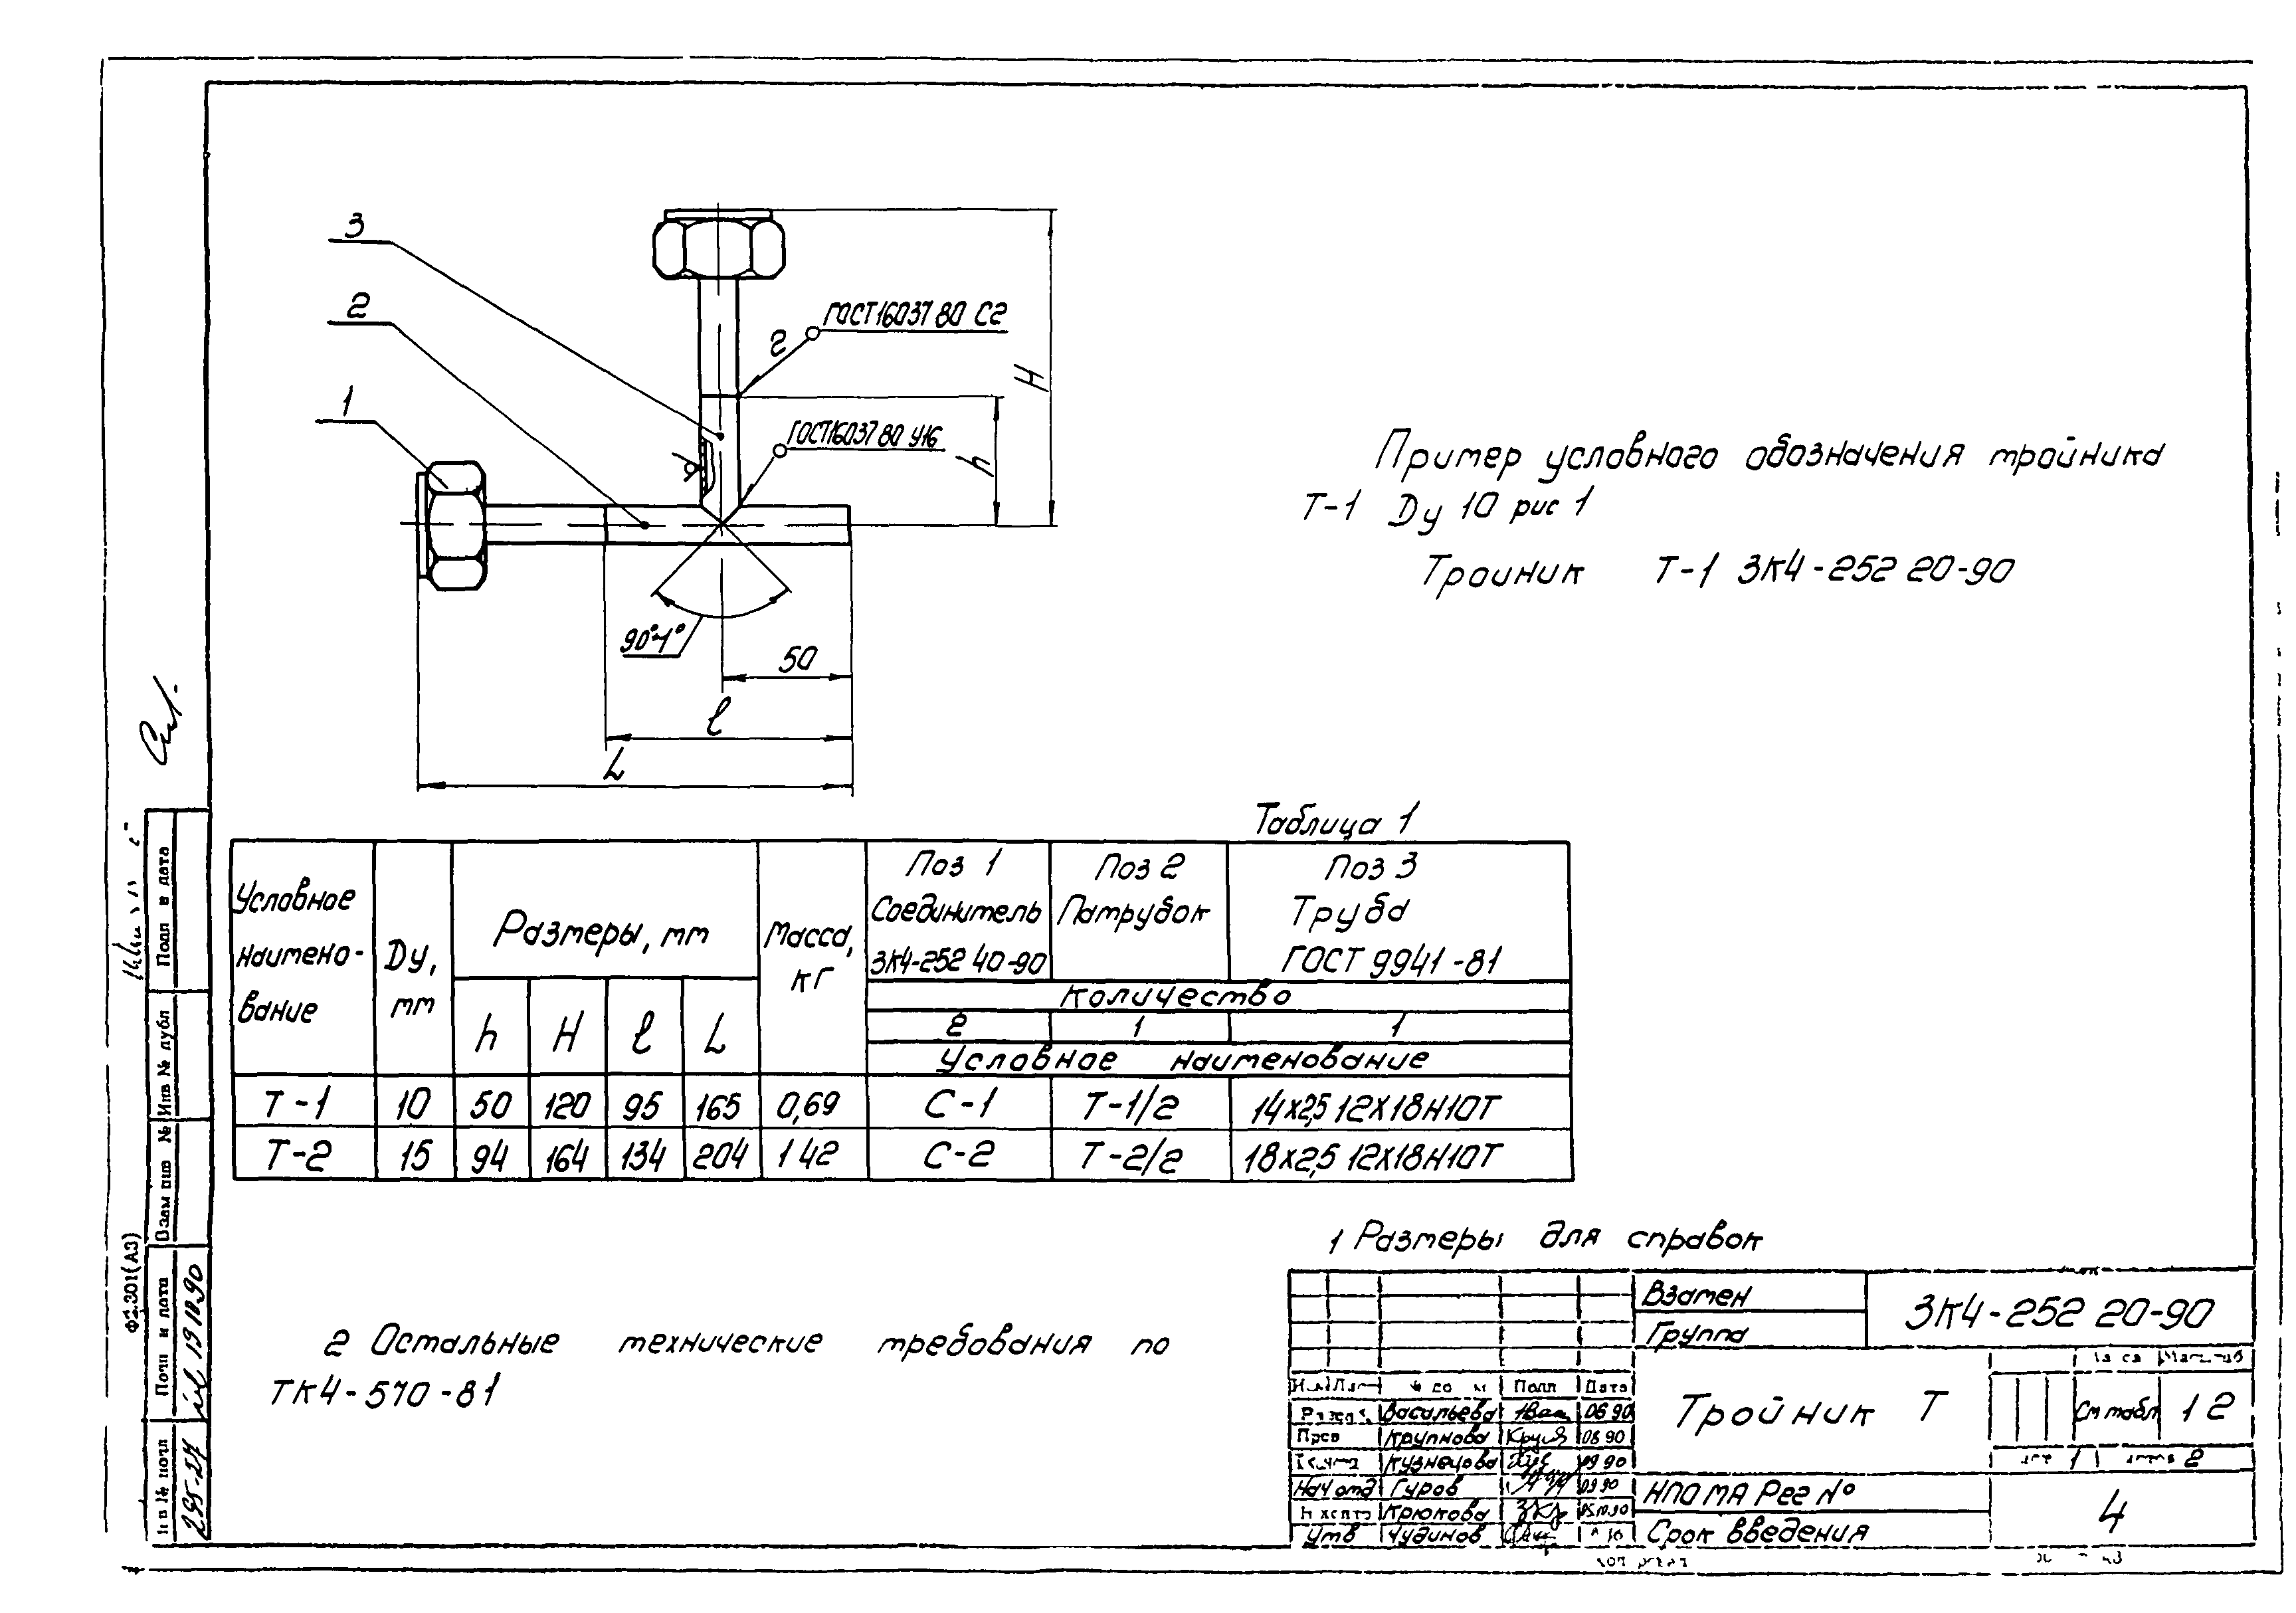 3
2
1
ГОСТ16037 80 С2
2
ГОСТ16037 80 У16
H
h
90°±1°
50
ℓ
L
Пример условного обозначения тройника
Т-1 Ду 10 рис 1
Тройник Т-1 ЗК4-252 20-90
Таблица 1
Условное наимено-вание
Ду, мм
Размеры, мм
h H ℓ L
Масса, кг
Поз 1 Соединитель ЗК4-252 40-90
Поз 2 Патрубок
Поз 3 Труба ГОСТ 9941-81
Количество
2 1 1
Условное наименование
Т-1 10 50 120 95 165 0,69 С-1 Т-1/2 14х2,5 12Х18Н10Т
Т-2 15 94 164 134 204 1 42 С-2 Т-2/2 18х2,5 12Х18Н10Т
1 Размеры для справок
2 Остальные технические требования по
ТК4-570-81
Взамен
Группа
ЗК4-252 20-90
Тройник Т
См табл
1 2
1
2
Подп Дата
Васильева 06 90
Пров Крупнова 08 90
Кузнецова 09 90
Нач отд Гуров 09 90
Крюкова
Утв Чудинов
НПО МА Рег №
Срок введения
4
Подп и дата
Инв № дубл
Взам инв №
Подп и дата
19 10.90
Инв № подл
Ф2.301(А3)